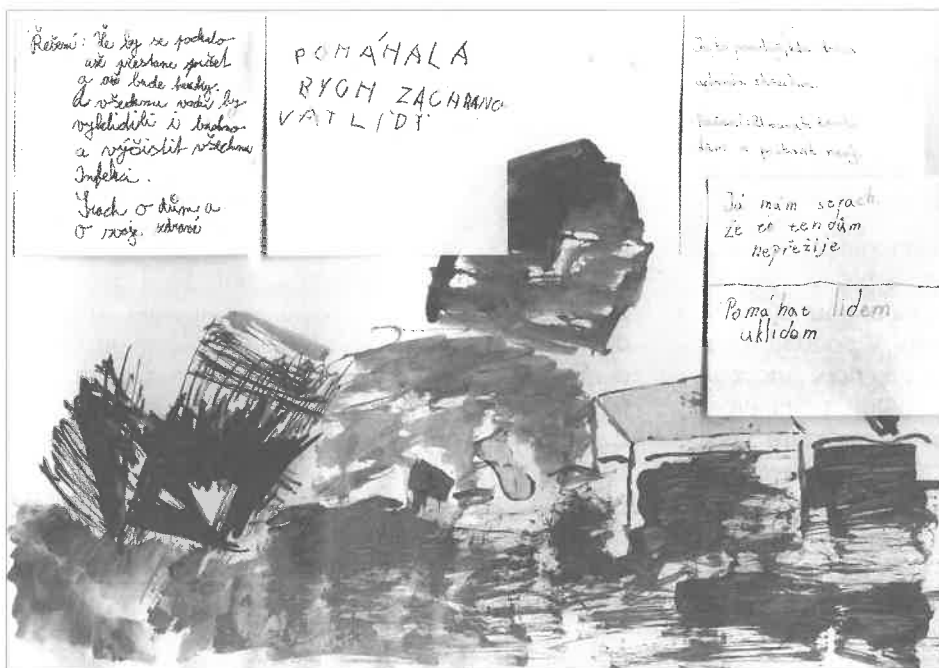 Řešení: Že by se počkalo
až přestane pršet
a až bude hezky.
a všechnu vodu by
vyklidili i bahno
a vyčistit všechnu
Infekci.
Strach o dům a
o svoj. zdraví
POMÁHALA
BYCH ZACHRAŇO
VAT LIDY
Já mám strach
že to ten dům
nepřežije
Pomáhat lidem
uklidom